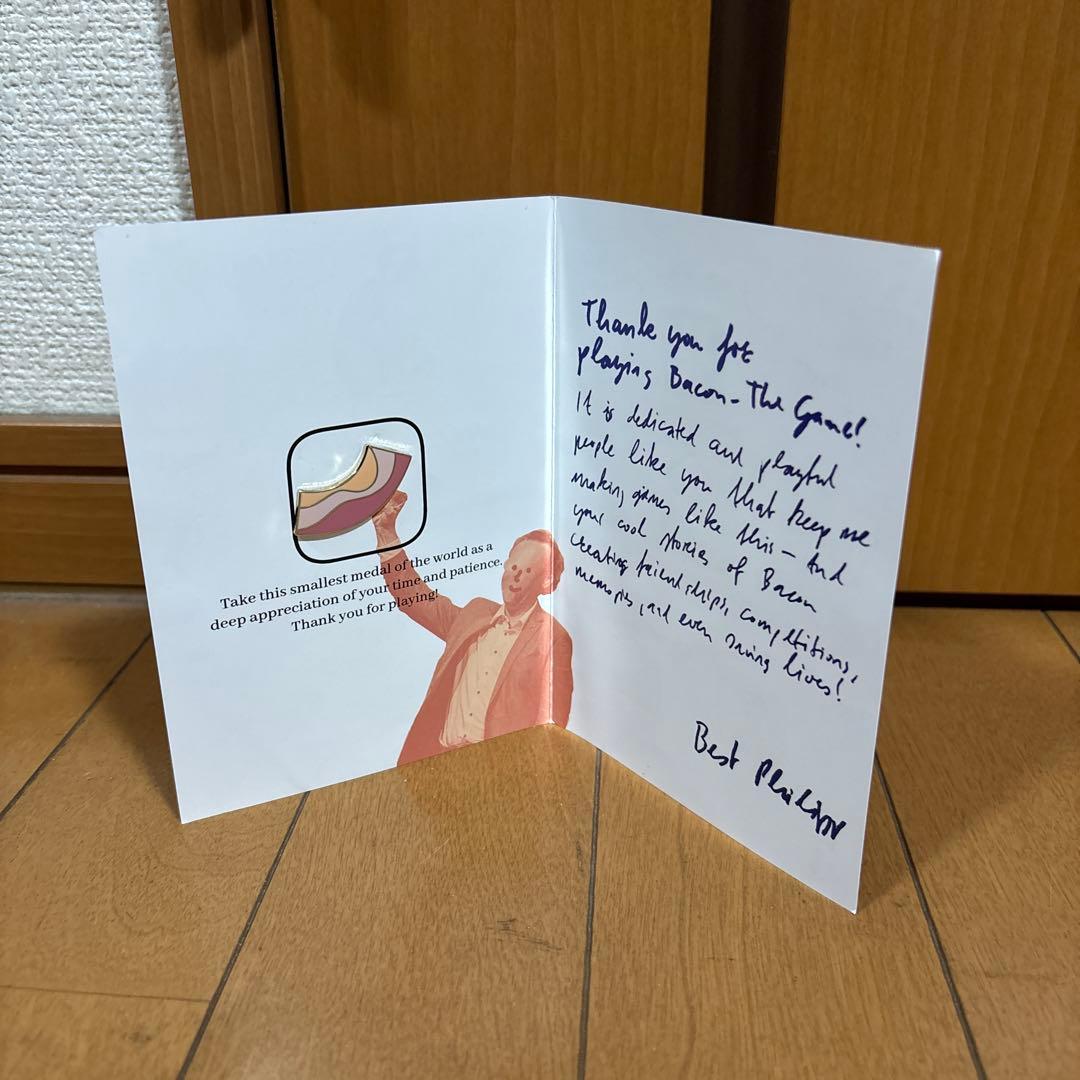 Take this smallest medal of the world as a
deep appreciation of your time and patience.
Thank you for playing!
Thank you for
playing Bacon - The Game!
It is dedicated and playful
people like you that keep me
making games like this - And
your cool stories of Bacon
creating friendships, competitions,
memories, and even saving lives!
Best Philipp